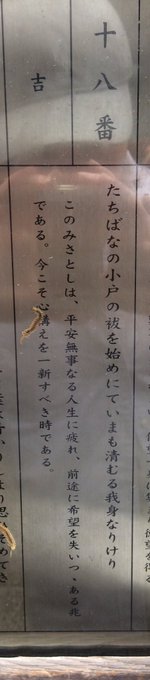 十八番
吉
たちばなの小戸の祓を始めにていまも清むる我身なりけり
このみさとしは、平安無事なる人生に疲れ、前途に希望を失いつゝある兆
である。今こそ心構えを一新すべき時である。